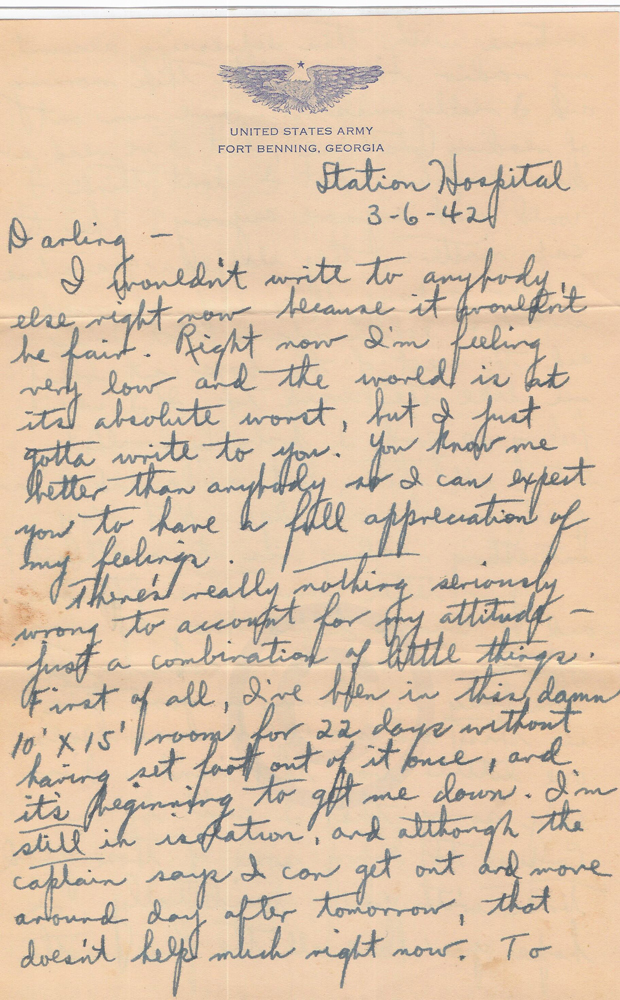 UNITED STATES ARMY
FORT BENNING, GEORGIA
Station Hospital
3-6-42
Darling —
I wouldn't write to anybody
else right now because it wouldn't
be fair. Right now I'm feeling
very low and the world is at
its absolute worst, but I just
gotta write to you. You know me
better than anybody so I can expect
you to have a full appreciation of
my feelings.
There's really nothing seriously
wrong to account for my attitude —
just a combination of little things.
First of all, I've been in this damn
10' X 15' room for 22 days without
having set foot out of it once, and
it's beginning to get me down. I'm
still in isolation, and although the
captain says I can get out and move
around day after tomorrow, that
doesn't help much right now. To